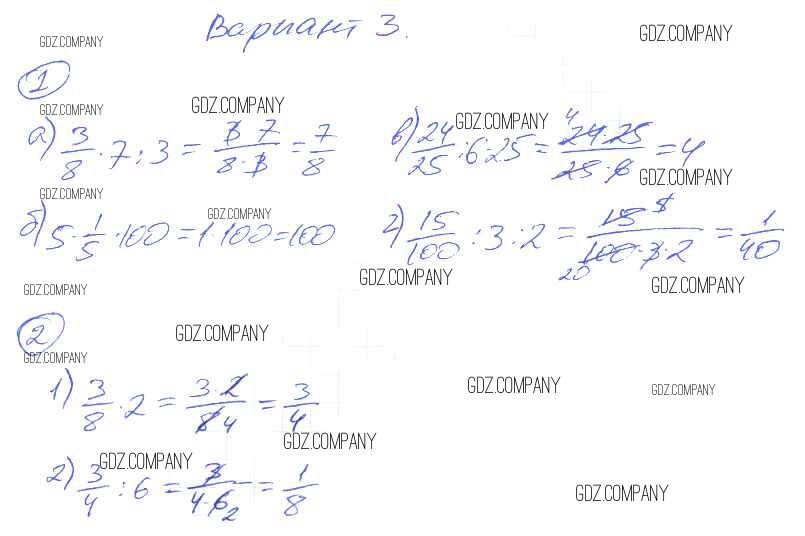 Вариант 3.
GDZ.COMPANY GDZ.COMPANY
1
GDZ.COMPANY GDZ.COMPANY GDZ.COMPANY
а) 3/8 · 7 : 3 = 3 7 / 8 · 3 = 7/8
в) 24/25 : 6 · 25 = 24 · 25 / 25 · 6 = 4
4
GDZ.COMPANY GDZ.COMPANY
GDZ.COMPANY
б) 5 · 1/5 · 100 = 1 · 100 = 100
г) 15/100 : 3 : 2 = 15 5 / 100 · 3 · 2 = 1/40
20
GDZ.COMPANY GDZ.COMPANY GDZ.COMPANY
2
GDZ.COMPANY
GDZ.COMPANY
1) 3/8 · 2 = 3 · 2 / 8 4 = 3/4
GDZ.COMPANY GDZ.COMPANY
GDZ.COMPANY
GDZ.COMPANY
2) 3/4 : 6 = 3 / 4 · 6 2 = 1/8
GDZ.COMPANY